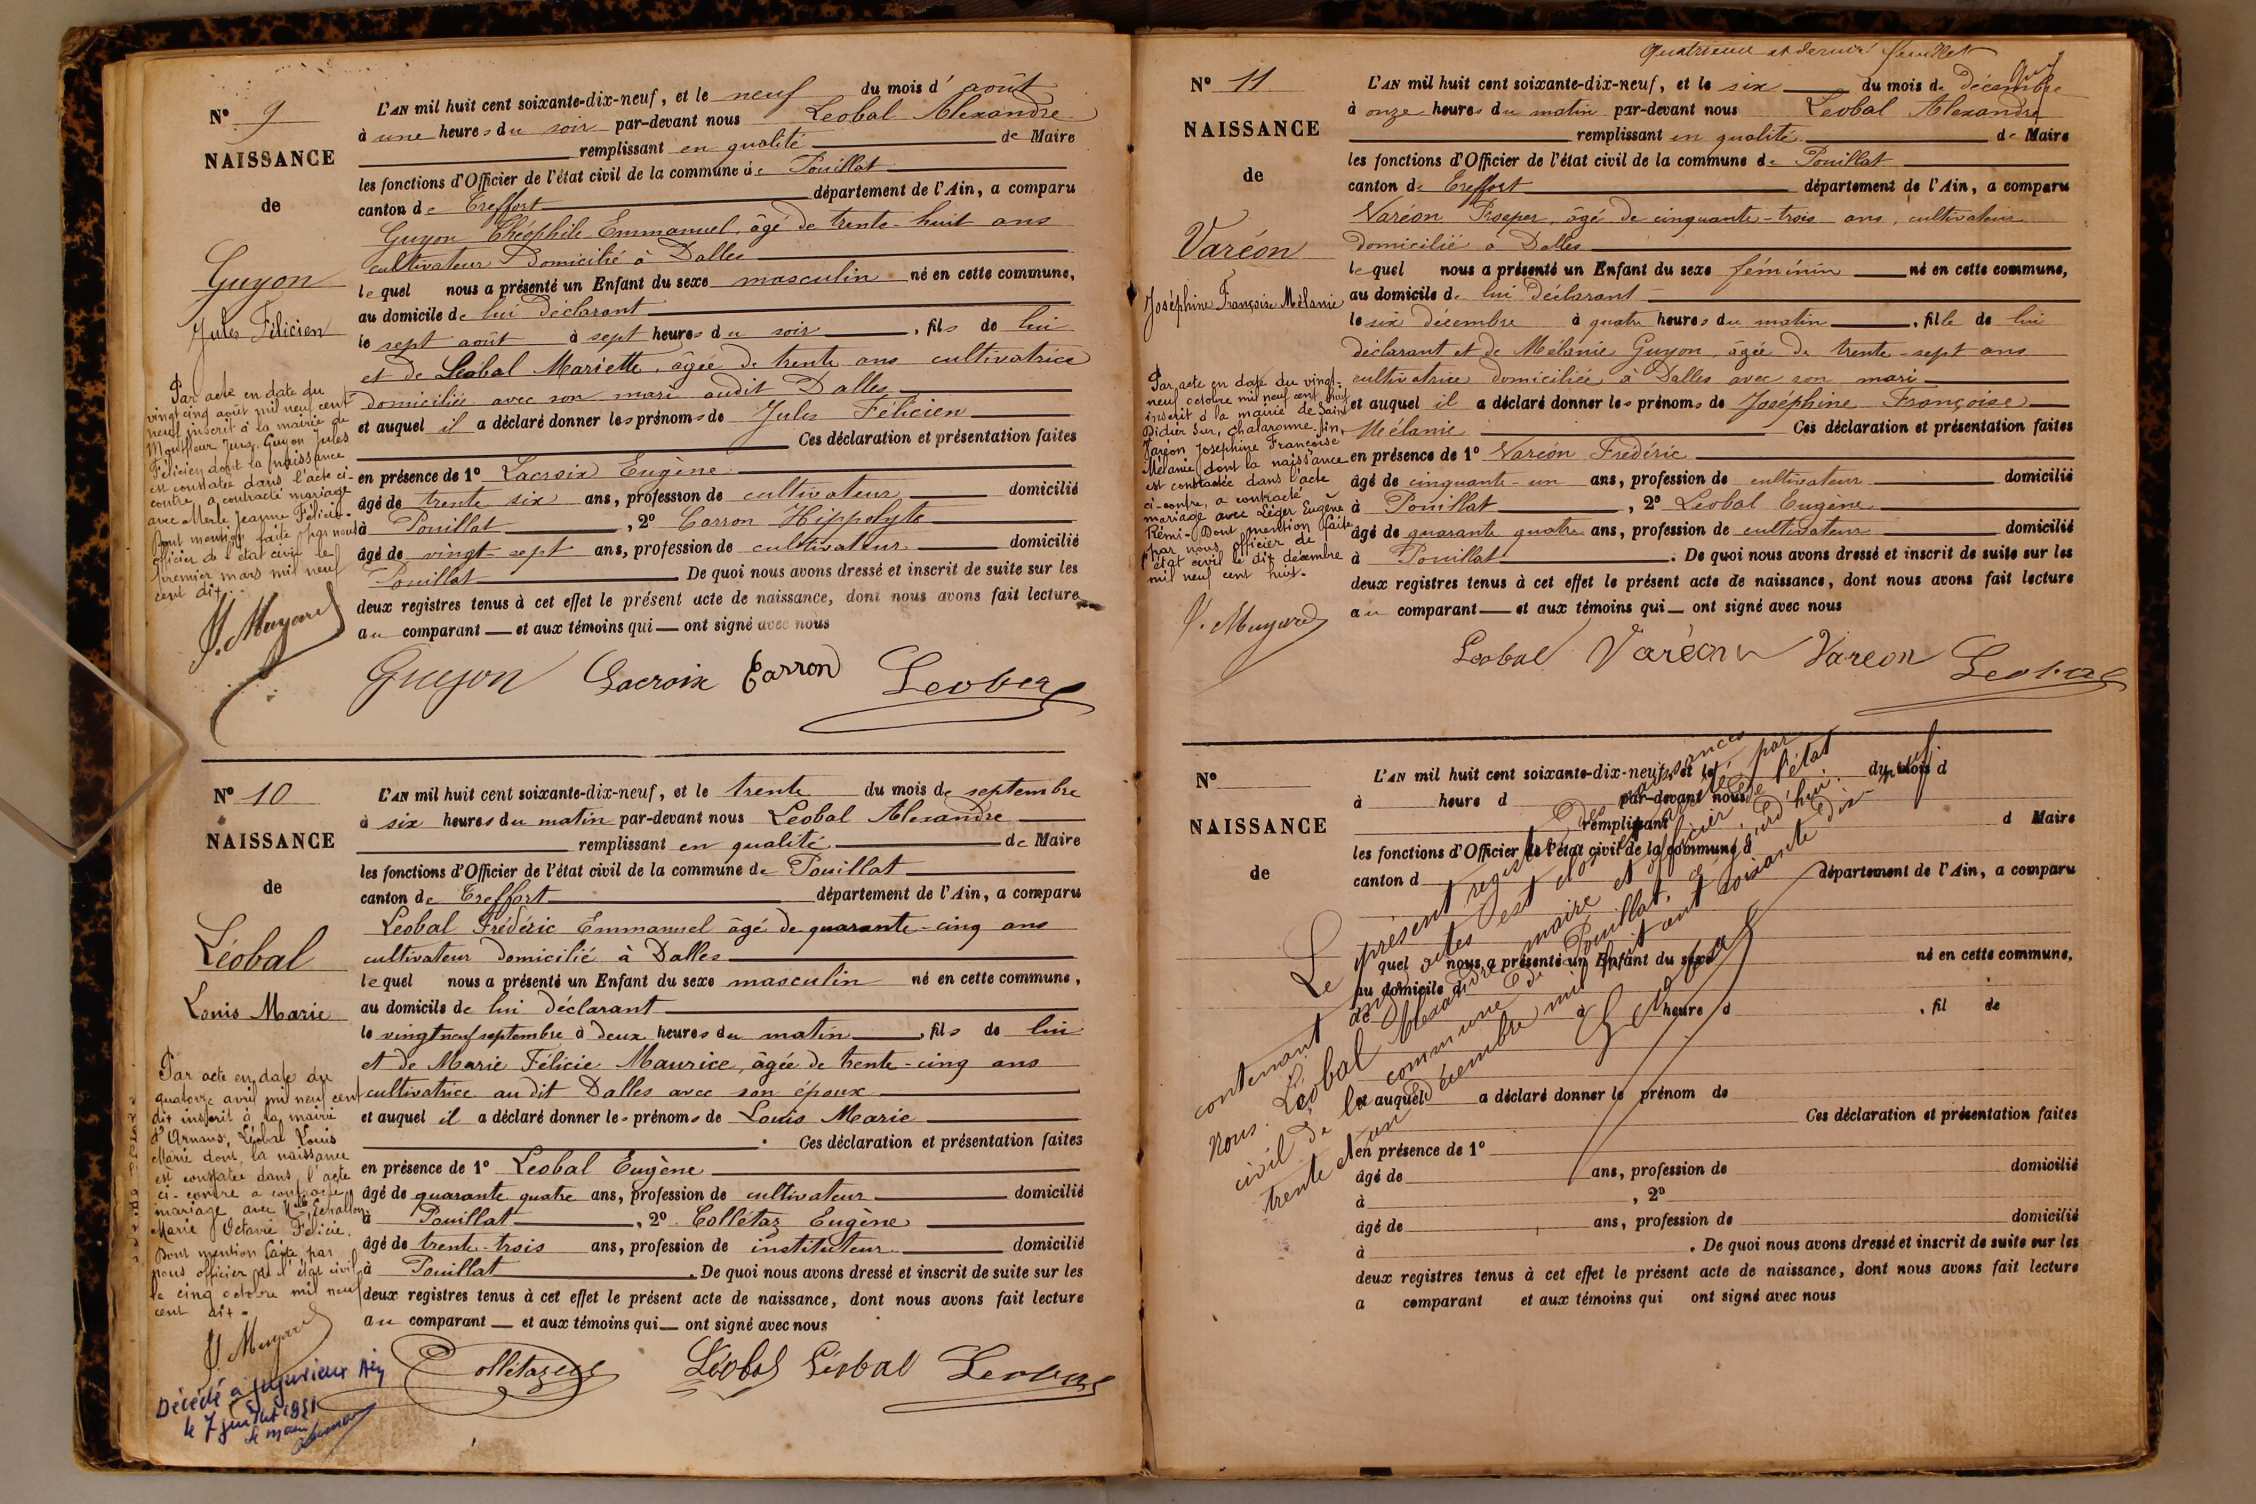 N° 9
NAISSANCE
de
Guyon
Jules Félicien
Par acte en date du
vingt cinq août mil neuf cent
neuf inscrit à la mairie de
Montfleur Jura, Guyon Jules
Félicien dont la naissance
est constatée dans l'acte ci-
contre, a contracté mariage
avec Merle Jeanne Félicie.
Dont mention faite par nous
officier de l'état civil le
premier mars mil neuf
cent dix.
L'AN mil huit cent soixante-dix-neuf, et le neuf du mois d'août
à une heures du soir par-devant nous Léobal Alexandre
remplissant en qualité de Maire
les fonctions d'Officier de l'état civil de la commune de Pouillat
canton de Treffort département de l'Ain, a comparu
Guyon Théophile Emmanuel, âgé de trente-huit ans
cultivateur Domicilié à Dalles
lequel nous a présenté un Enfant du sexe masculin né en cette commune,
au domicile de lui déclarant
le sept août à sept heures du soir, fils de lui
et de Léobal Mariette, âgée de trente ans cultivatrice
domiciliée avec son mari audit Dalles
et auquel il a déclaré donner les prénoms de Jules Félicien
Ces déclaration et présentation faites
en présence de 1° Lacroix Eugène
âgé de trente six ans, profession de cultivateur domicilié
à Pouillat, 2° Carron Hippolyte
âgé de vingt sept ans, profession de cultivateur domicilié
Pouillat De quoi nous avons dressé et inscrit de suite sur les
deux registres tenus à cet effet le présent acte de naissance, dont nous avons fait lecture
au comparant — et aux témoins qui — ont signé avec nous
Guyon Lacroix Carron Leobal
N° 10
NAISSANCE
de
Léobal
Louis Marie
Par acte en date du
quatorze avril mil neuf cent
dix inscrit à la mairie
d'Arnans, Léobal Louis
Marie dont la naissance
est constatée dans l'acte
ci-contre a contracté
mariage avec Mlle Echallon
Marie Octavie Félicie.
Dont mention faite par
nous officier de l'état civil
le cinq octobre mil neuf
cent dix.
Décédé à Jujurieux Ain
le 7 juillet 1951
le maire
L'AN mil huit cent soixante-dix-neuf, et le trente du mois de septembre
à six heures du matin par-devant nous Léobal Alexandre
remplissant en qualité de Maire
les fonctions d'Officier de l'état civil de la commune de Pouillat
canton de Treffort département de l'Ain, a comparu
Leobal Frédéric Emmanuel âgé de quarante-cinq ans
cultivateur domicilié à Dalles
lequel nous a présenté un Enfant du sexe masculin né en cette commune,
au domicile de lui déclarant
le vingt neuf septembre à deux heures du matin, fils de lui
et de Marie Félicie Maurice, âgée de trente-cinq ans
cultivatrice au dit Dalles avec son époux
et auquel il a déclaré donner les prénoms de Louis Marie
Ces déclaration et présentation faites
en présence de 1° Leobal Eugène
âgé de quarante quatre ans, profession de cultivateur domicilié
à Pouillat, 2° Colletaz Eugène
âgé de trente-trois ans, profession de instituteur domicilié
à Pouillat. De quoi nous avons dressé et inscrit de suite sur les
deux registres tenus à cet effet le présent acte de naissance, dont nous avons fait lecture
au comparant — et aux témoins qui — ont signé avec nous
Colletaz Léobal Léobal Leobal
Quatrième et dernier feuillet
N° 11
NAISSANCE
de
Varéon
Joséphine Françoise Mélanie
Par acte en date du vingt-
neuf octobre mil neuf cent huit
inscrit à la mairie de Saint
Didier sur Chalaronne Ain,
Varéon Joséphine Françoise
Mélanie dont la naissance
est constatée dans l'acte
ci-contre, a contracté
mariage avec Léger Eugène
Rémi. Dont mention faite
par nous officier de
l'état civil le dix décembre
mil neuf cent huit.
L'AN mil huit cent soixante-dix-neuf, et le six du mois de décembre
à onze heures du matin par-devant nous Léobal Alexandre
remplissant en qualité de Maire
les fonctions d'Officier de l'état civil de la commune de Pouillat
canton de Treffort département de l'Ain, a comparu
Varéon Prosper, âgé de cinquante-trois ans, cultivateur
domicilié à Dalles
lequel nous a présenté un Enfant du sexe féminin né en cette commune,
au domicile de lui déclarant
le six décembre à quatre heures du matin, fille de lui
déclarant et de Mélanie Guyon, âgée de trente-sept ans
cultivatrice domiciliée à Dalles avec son mari
et auquel il a déclaré donner les prénoms de Joséphine Françoise
Mélanie Ces déclaration et présentation faites
en présence de 1° Varéon Frédéric
âgé de cinquante-un ans, profession de cultivateur domicilié
à Pouillat, 2° Leobal Eugène
âgé de quarante quatre ans, profession de cultivateur domicilié
à Pouillat. De quoi nous avons dressé et inscrit de suite sur les
deux registres tenus à cet effet le présent acte de naissance, dont nous avons fait lecture
au comparant — et aux témoins qui — ont signé avec nous
Leobal Varéon Vareon Leobal
N°
NAISSANCE
de
L'AN mil huit cent soixante-dix-neuf, et le du mois d
à heure d par-devant nous
remplissant d Maire
les fonctions d'Officier de l'état civil de la commune d
canton d département de l'Ain, a comparu
quel nous a présenté un Enfant du sexe né en cette commune,
au domicile d
à heure d , fil de
et auquel a déclaré donner le prénom de
Ces déclaration et présentation faites
en présence de 1°
âgé de ans, profession de domicilié
à , 2°
âgé de ans, profession de domicilié
à . De quoi nous avons dressé et inscrit de suite sur les
deux registres tenus à cet effet le présent acte de naissance, dont nous avons fait lecture
a comparant et aux témoins qui ont signé avec nous
Le présent registre des naissances
contenant actes est clos et arrêté par
Nous Léobal Alexandre maire et officier de l'état
civil de la commune de Pouillat, cejourd'hui
trente et un décembre mil huit cent soixante dix-neuf
Leobal